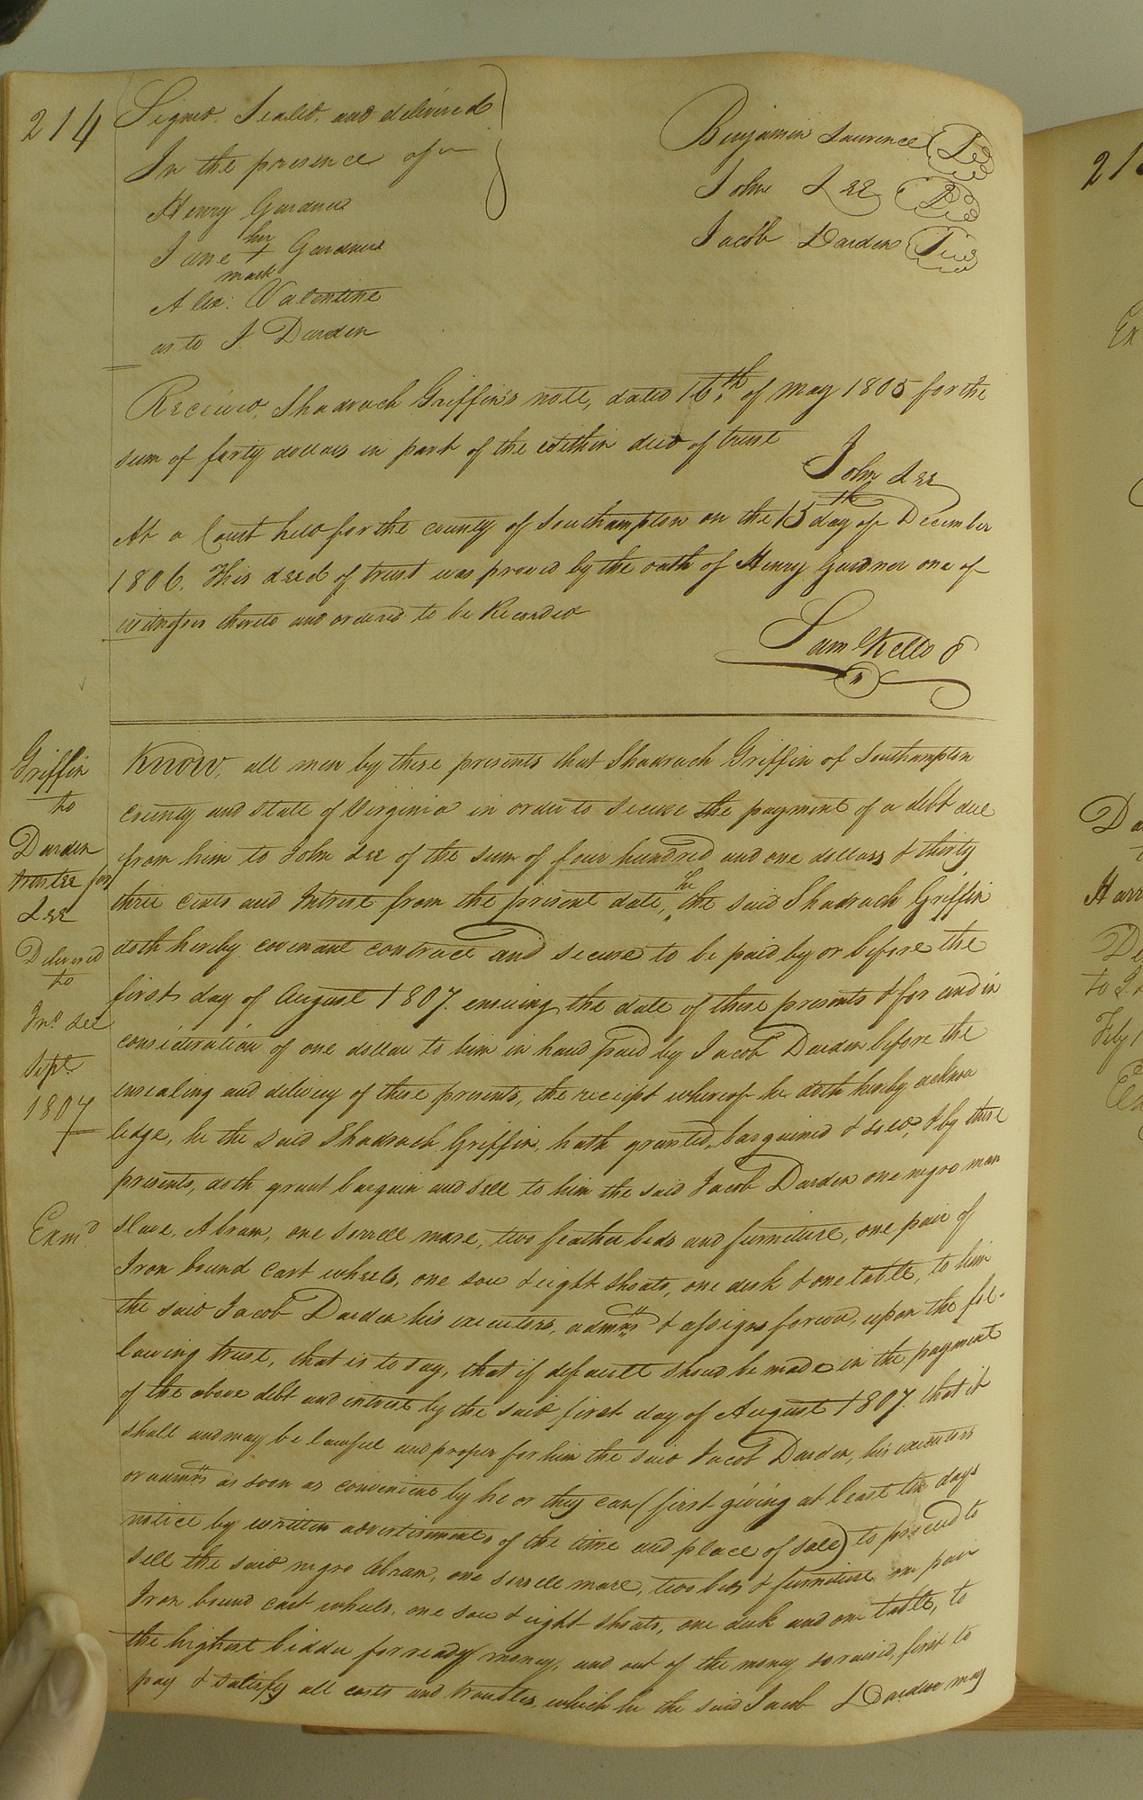 214
Signed. Sealed. and delivered
In the presence of
Henry Gardner
her
Jane + Gardner
mark
Alex: Valentine
as to J. Darden
Benjamin Lawrence
John Lee
Jacob Darden
Received. Shadrach Griffin's note, dated 16th of may 1805 for the
sum of forty dollars in part of the within deed of trust
John Lee
At a Court held for the county of Southampton on the 15th day of December
1806. This deed of trust was proved by the oath of Henry Gardner one of
witnesses thereto and ordered to be Recorded
Sam Kello
Griffin
to
Darden
trustee for
Lee
Delivered
to
Jno. Lee
Sept.
1807
Exmd
Know, all men by these presents that Shadrach Griffin of Southampton
County and State of Virginia in order to secure the payment of a debt due
from him to John Lee of the sum of four hundred and one dollars & thirty
three cents and Intrest from the present date, he the said Shadrach Griffin
doth hereby covenant contract and secure to be paid by or before the
first day of August 1807. ensuing the date of these presents & for and in
consideration of one dollar to him in hand paid by Jacob Darden before the
ensealing and delivery of these presents, the receipt whereof he doth hereby acknow
ledge, he the said Shadrach Griffin, hath granted, bargained & sold, & by these
presents, doth grant bargain and sell to him the said Jacob Darden one negro man
slave, Abram, one sorrell mare, two feather beds and furniture, one pair of
Iron bound cart wheels, one sow & eight shoats, one desk & one table, to him
the said Jacob Darden his executors, admrs & assigns forever, upon the fol-
lowing trust, that is to say, that if default should be made in the payment
of the above debt and intrest by the said first day of August 1807. that it
shall and may be lawful and proper for him the said Jacob Darden, his executors
or admrs as soon as convenient by he or they can (first giving at least ten days
notice by written advertisement, of the time and place of sale) to proceed to
sell the said negro Abram, one sorrell mare, two beds & furniture one pair
Iron bound cart wheels, one sow & eight shoats, one desk and one table, to
the highest bidder for ready money, and out of the money so raised, first to
pay & satisfy all costs and troubles, which he the said Jacob Darden may
215